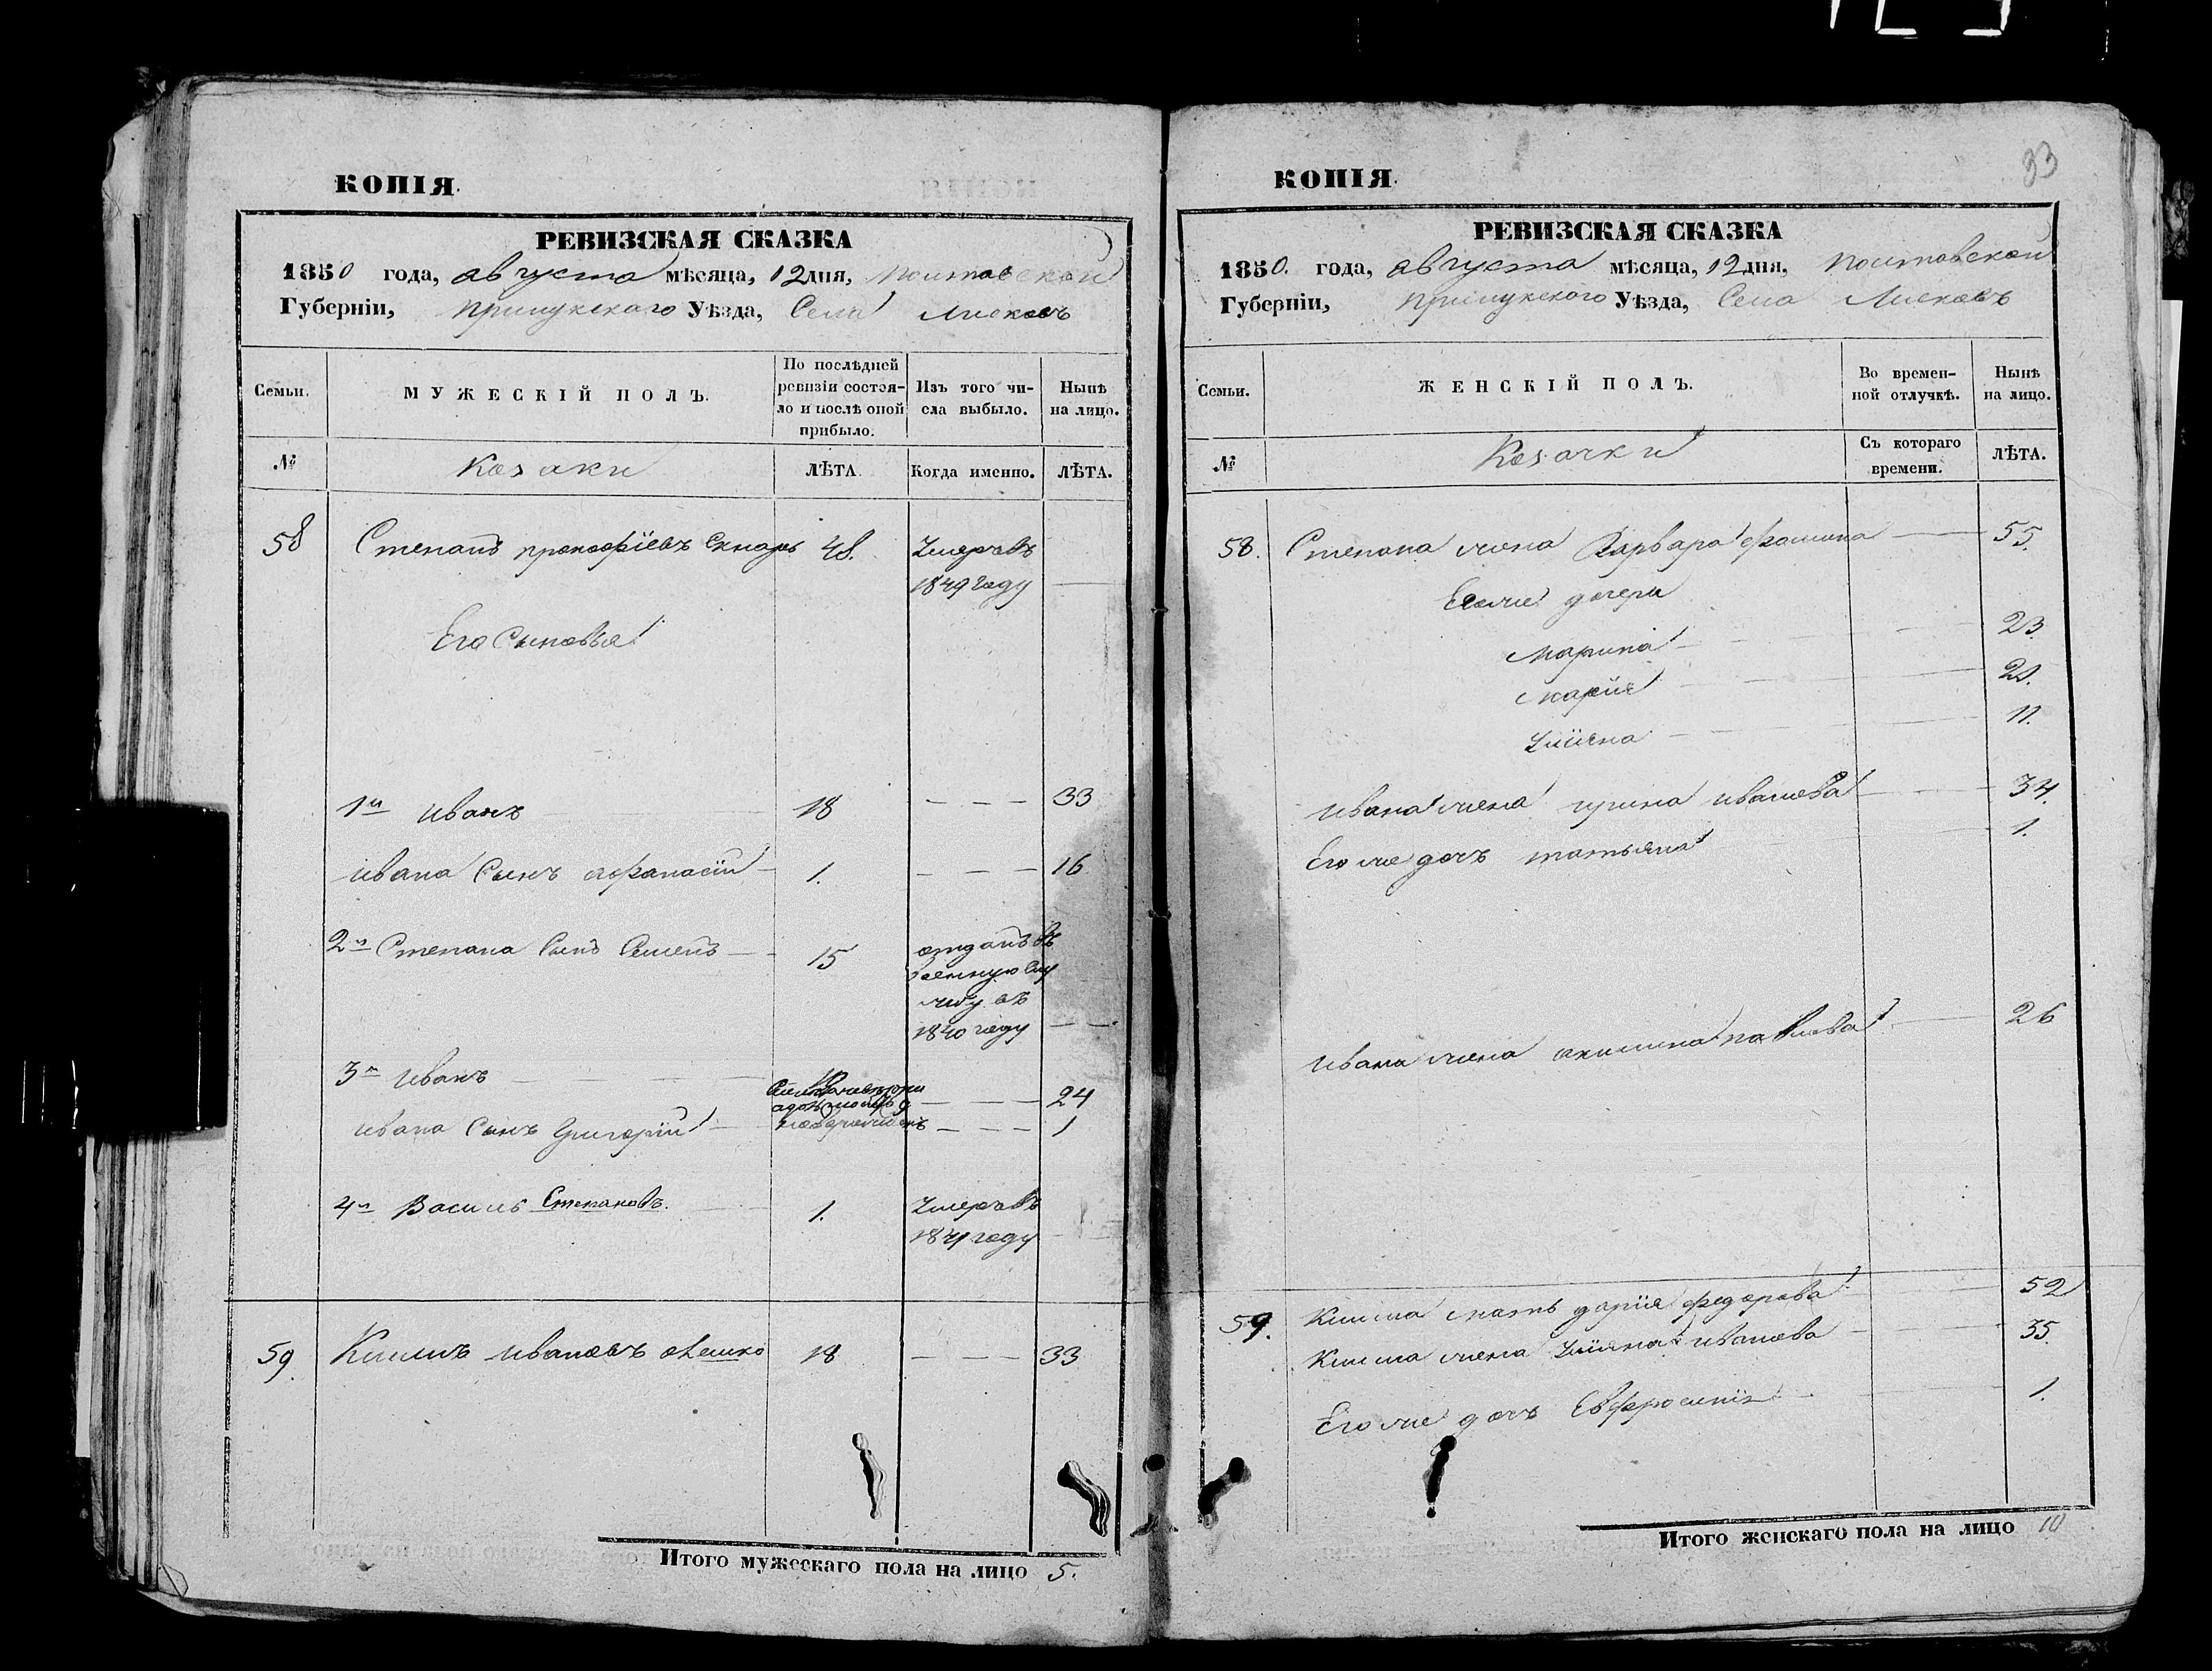 КОПІЯ.
РЕВИЗСКАЯ СКАЗКА
1850 года, августа мѣсяца, 12 дня, Полтавской
Губерніи, Прилукского Уѣзда, Села Лисковъ
Семьи.
МУЖЕСКІЙ ПОЛЪ.
По послѣдней
ревизіи состоя-
ло и послѣ оной
прибыло.
Изъ того чи-
сла выбыло.
Нынѣ
на лицо.
№
Козаки
ЛѢТА.
Когда именно.
ЛѢТА.
58 Степанъ Прокофіевъ 48. Умеръ въ
1849 году
Его Сыновья
1й Иванъ 18 33
Ивана Сынъ Афанасій 1. 16
2й Степана Сынъ Семенъ 15 отданъ въ
военную слу
жбу въ
1840 году
3й Иванъ 24
Ивана Сынъ Григорій 1
4й Василь Степановъ. 1. Умеръ въ
1841 году
59. Климъ Ивановъ 18 33
Итого мужескаго пола на лицо 5.
33
КОПІЯ.
РЕВИЗСКАЯ СКАЗКА
1850. года, августа мѣсяца, 12 дня, Полтавской
Губерніи, Прилукского Уѣзда, Села Лисковъ
Семьи.
ЖЕНСКІЙ ПОЛЪ.
Во времен-
ной отлучкѣ.
Нынѣ
на лицо.
№
Козачки
Съ котораго
времени.
ЛѢТА.
58. Степана жена Варвара Фомина 55.
дочери
Марина 23.
Марія
Уліяна 11.
Ивана жена Ирина Иванова 34.
Его же дочъ Татьяна 1.
Ивана жена Акилина Павлова 26
59. Клима мать Дарія Федорова 52
Клима жена Уліяна Иванова 35.
Его же дочъ Евфросинія 1.
Итого женскаго пола на лицо 10